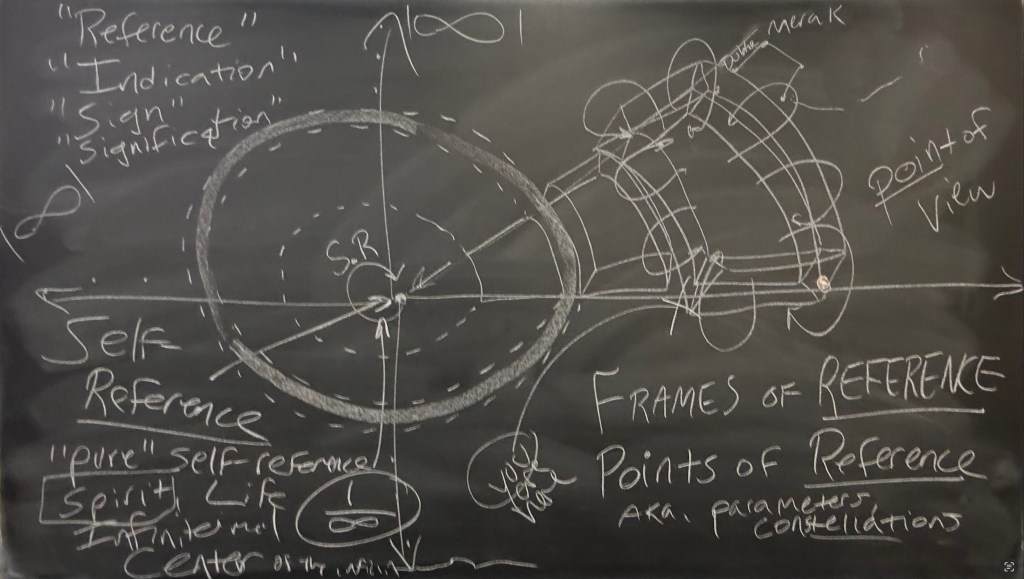 "Reference"
"Indication"
"Sign"
"Signification"
|∞|
|∞|
Merak
Point of
View
S.R
Self
Reference
"pure" self reference
Spirit, Life
Infinitesimal
Center of the
1/∞
FRAMES OF REFERENCE
Points of Reference
AKA, parameters
constellations